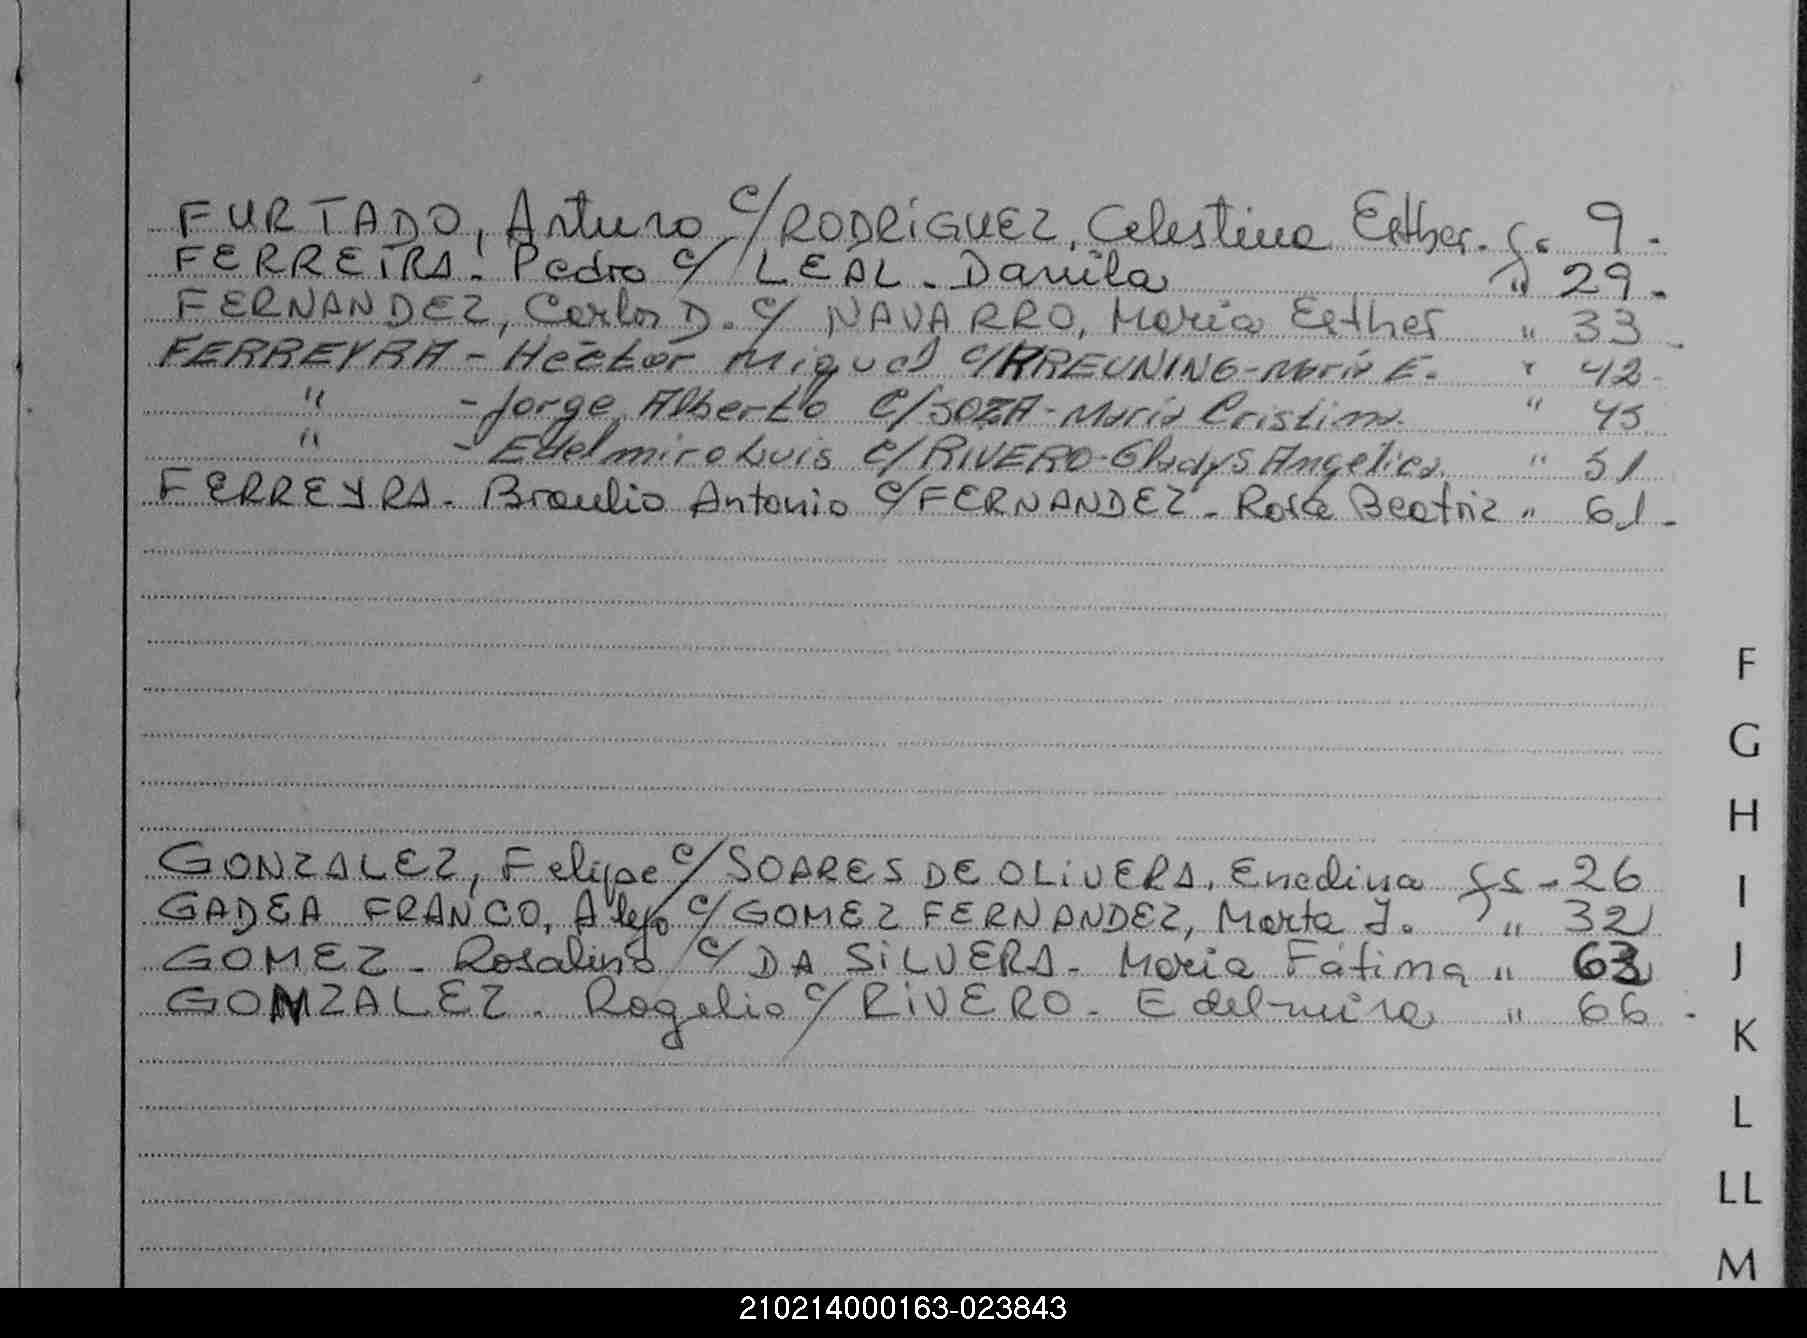 FURTADO, Arturo c/ RODRíGUEZ, Celestina Esther. fs 9.-
FERREIRA. Pedro c/ LEAL. Danila " 29.-
FERNANDEZ, Carlos D. c/ NAVARRO, María Esther " 33
FERREYRA - Héctor Miguel c/ PREUNING - María E. " 42
" - Jorge Alberto c/ SOZA - María Cristina. " 45
" - Edelmiro Luis c/ RIVERO - Gladys Angélica. " 51
FERREYRA. Braulio Antonio c/ FERNANDEZ - Rosa Beatriz " 61-
F
G
H
GONZALEZ, Felipe c/ SOARES DE OLIVERA, Enedina fs - 26
I
GADEA FRANCO, Alejo c/ GOMEZ FERNANDEZ, Marta J. " 32
GOMEZ - Rosalino c/ DA SILVERA - María Fátima " 63
J
GONZALEZ. Rogelio c/ RIVERO - Edelmira " 66 -
K
L
LL
M
210214000163-023843